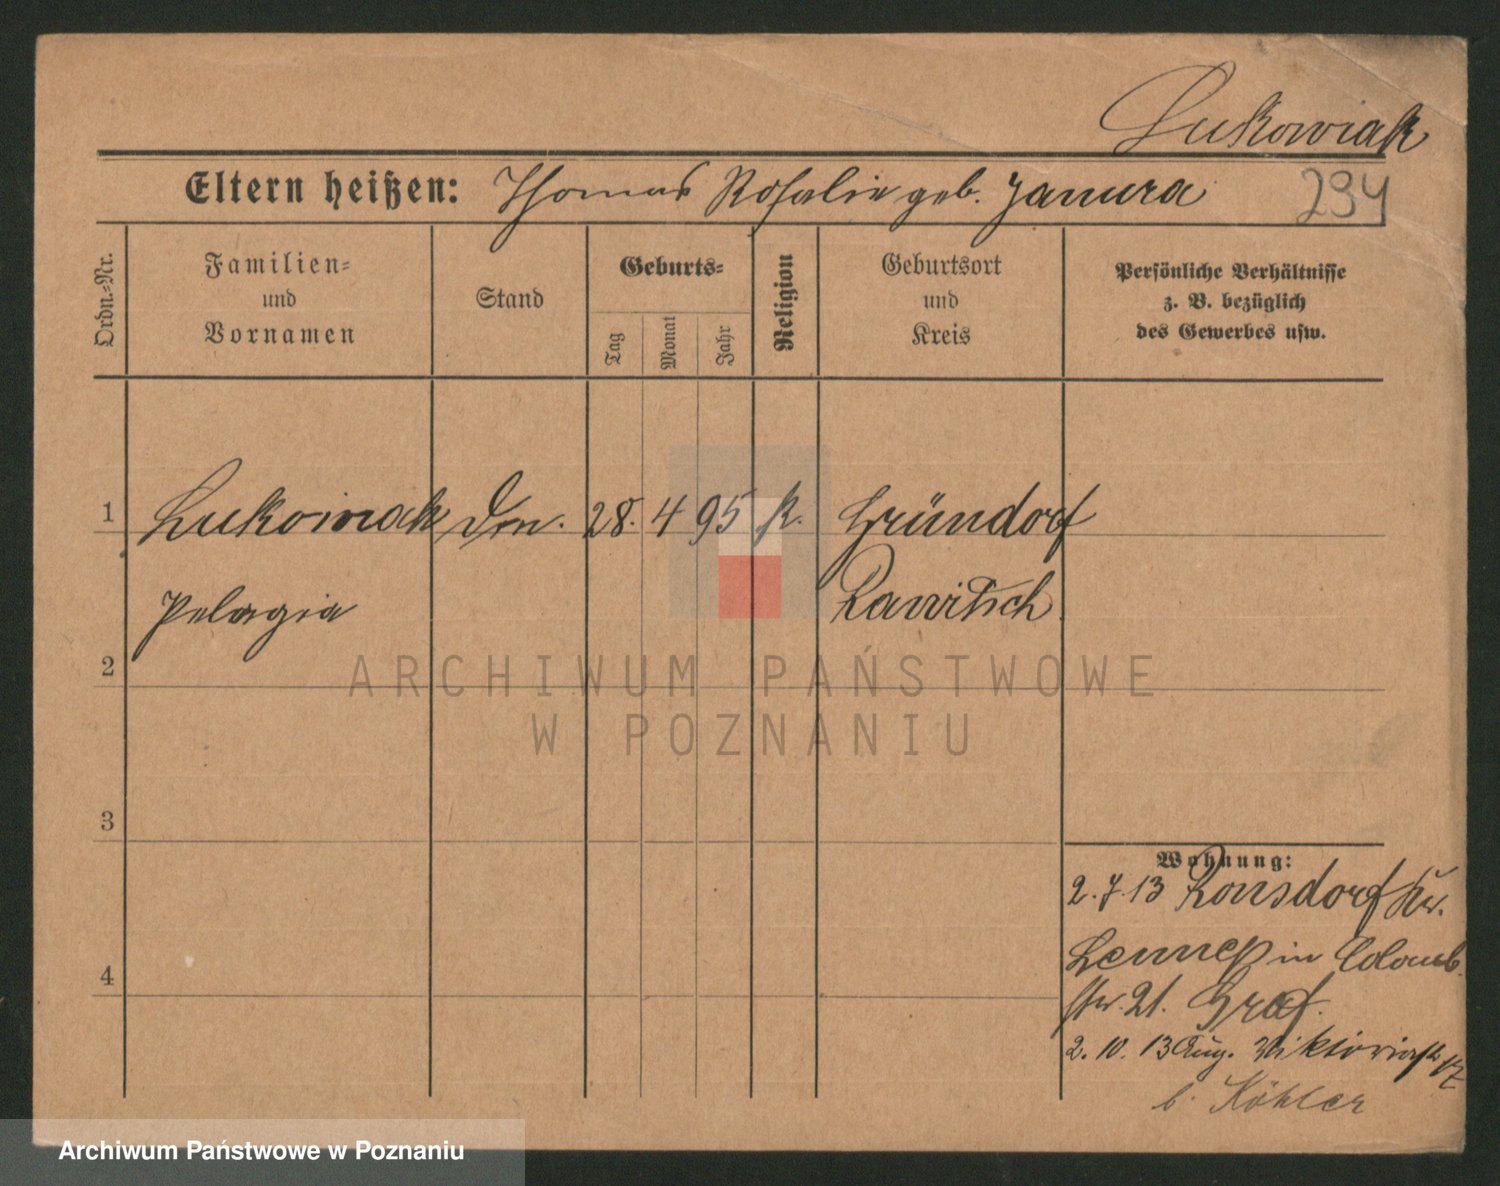 Lukowiak
Eltern heißen: Thomas Rosalie geb. Janura 294
Ordn.-Nr.
Familien-
und
Vornamen
Stand
Geburts-
Tag
Monat
Jahr
Religion
Geburtsort
und
Kreis
Persönliche Verhältnisse
z. B. bezüglich
des Gewerbes usw.
1 Lukowiak 28. 4 95 k. Gründorf
Pelagia Rawitsch
2
ARCHIWUM PAŃSTWOWE
W POZNANIU
3
4
Wohnung:
2.7.13 Ronsdorf Kr.
Lennep in Colomb
str. 21. Graf.
2. 10. 13 Aug. Viktoriastr 17
b. Köhler
Archiwum Państwowe w Poznaniu